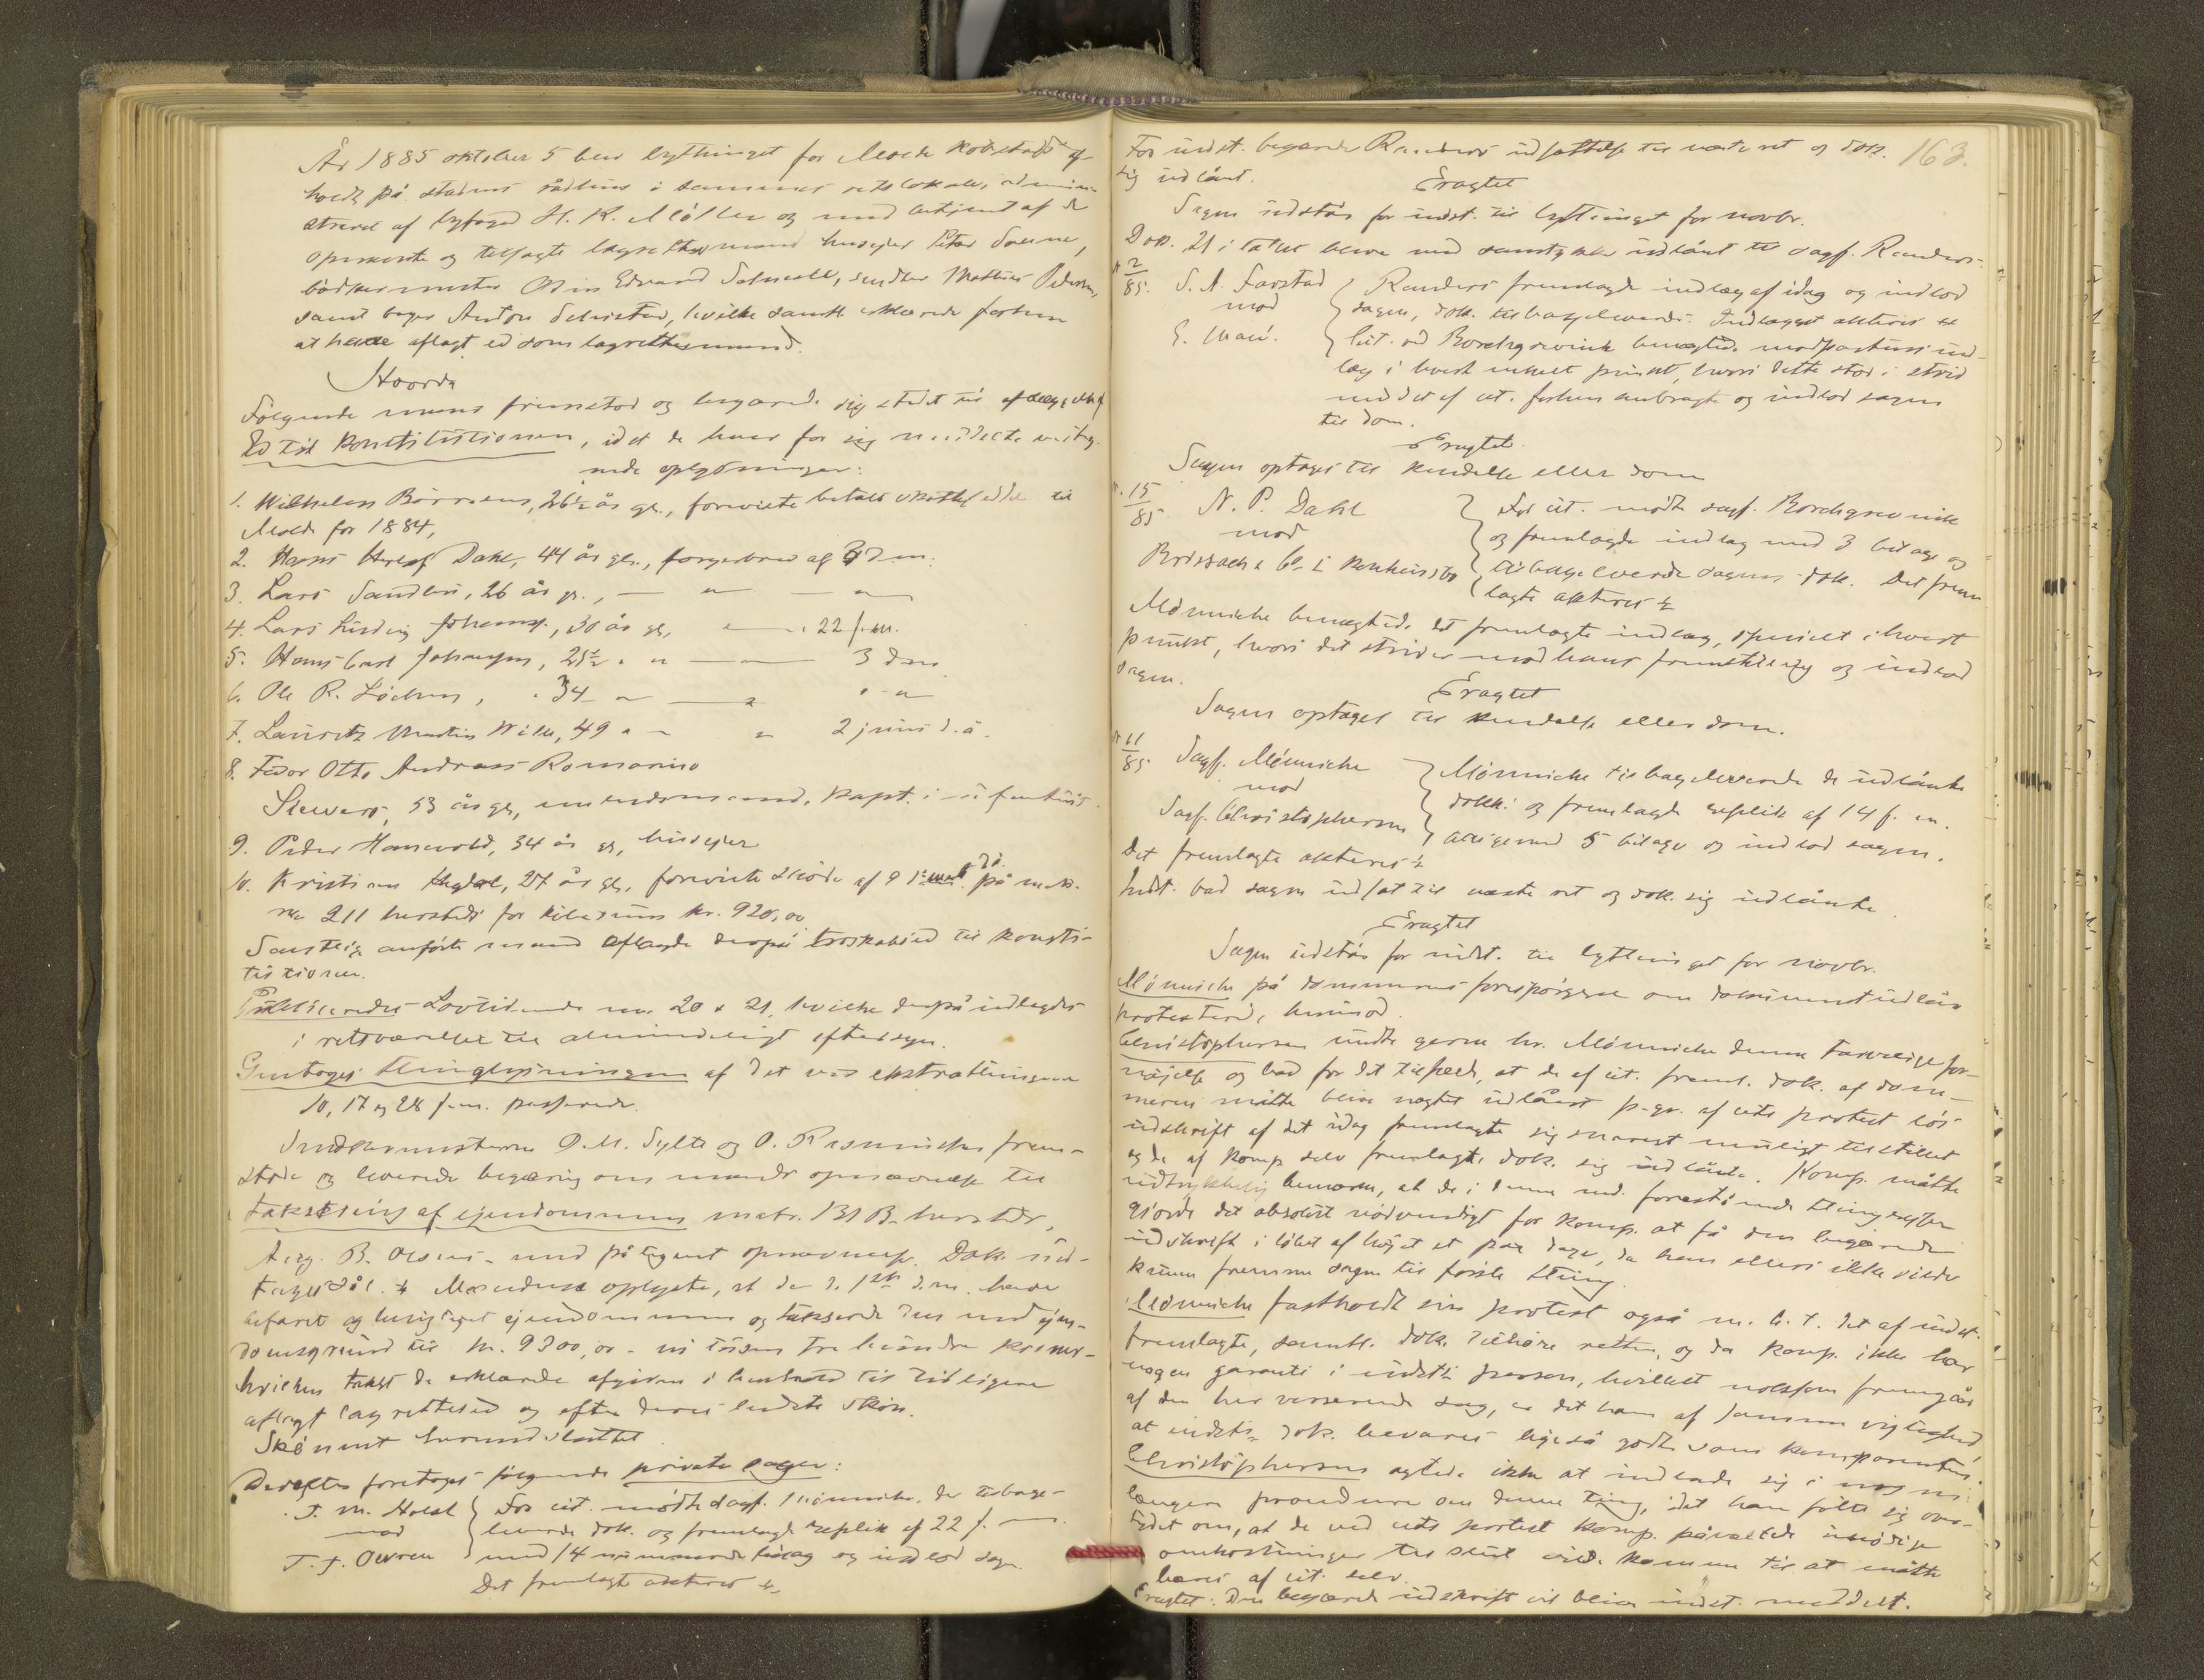 År 1885 oktober 5 blev bythinget for Molde kobstad af-
holdt på stadens rådhus i sammes retslokale, admini-
streret af byfoged H. K. Möller og med betjent af de
opnævnte og tilsagte lagrettesmænd husejer Peter
bödkermester Edvard snedker Mathias Pedersen,
samt bager Anton hvilke samtl. erklærede forhen
at have aflagt ed som lagrettesmænd.
Hvorda
Fölgende mænd fremstod og begjærede sig stedet til aflæggelse af
Ed til Konstitutionen, idet de hver for sig meddelte
nde oplysninger:
1. Wilhelm 26½ år gl., foreviste betalt skatteseddel til
Molde for 1884,
2. Hans Dahl, 44 år gl., borgerbrev af 3 d. m.
3. Lars Sandlin, 26 år gl., — " — " —
4. Lars Ludvig Johans., 30 år gl, " — 22 f. m.
5. Hans Carl Johansen, 25½ " " — — 3 d m
6. Ole R. , " 34 " — " " "
7. Lauritz Martin Wiik, 49 " " " 2 juni d. å.
8. Fedor Otto Andreas Romarino
Siewers, 53 år gl, embedsmand, kapt. i infanteriet.
9. Peder 34 år gl, husejer
10. Kristian 27 år gl, foreviste sköde af 9 på matr.
no 211 hersteds for kr. 920,00
Samtlige anförte mænd aflagde derpå troskabsed til Konsti-
tutionen.
Publiceredes Lovtidende no. 20 & 21, hvilke derpå indlagdes
i retsværelset til almindeligt eftersyn.
Gentoges thinglysningen af det ved ekstrathingene
10, 17 og 28 f. m. passerede.
Snedkermesterne O. M. Sylte og O. frem-
stode og leverede begæring om mænds opnævnelse til
taksering af ejendommen matr. 131 B. hersteds,
tilhg. B. Olsen, med påtegnet opnævnelse. Dok. ind-
tages sål. Mændene oplyste, at de d. 1ste d. m. havde
befaret og besigtiget ejendommen og takserede den med ejen-
domsgrund til kr. 9300,00 - ni tusen tre hundre kroner -
hvilken takst de erklærede afgiven i henhold til tidligere
aflagt lagretteed og efter deres bedste skön.
Skönnet herved sluttet
Derefter foretoges fölgende private sager:
J. M. Holst } For cit. mödte sagf. Mönniche, der tilbage-
mod leverede dok. og fremlagde replik af 22 f. m.
T. J. Owren med 14 nummererede bilag og indlod sagen.
Det fremlagte akteres
163.
For indst. begærede Randers udsættelse til næste ret og dok.
sig udlånt.
Eragtet
Sagen udstår for indst. til bythinget for novbr.
Dok. 21 i tallet bleve med samtykke udlånt til sagf. Randers.
2/85. S. A. Farstad } Randers fremlagde indlæg af idag og indlod
mod sagen, dok. tilbageleverede. Indlægget akteres
E. cit. ved Borchgrevink benægtede modpartens ind-
læg i hvert enkelt punkt, hvori dette stod i strid
med det af cit. forhen anbragte og indlod sagen
til dom.
Eragtet.
Sagen optages til kendelse eller dom
15/85 N. P. Dahl } For cit. mödte sagf. Borchgrevink
mod og fremlagde indlæg med 3 bilage og
& Co. i tilbageleverede sagens dok. Det frem-
lagte akteres
Mönniche benægtede det fremlagte indlæg, specielt i hvert
punkt, hvori det strider mod hans fremstilling og indlod
sagen.
Eragtet
Sagen optages til kendelse eller dom.
11/85 Sagf. Mönniche } Mönniche tilbageleverede de udlånte
mod dokk. og fremlagde replik af 14 f. m.
Sagf. Christophersen alligemed 5 bilage og indlod sagen.
Det fremlagte akteres
Indst. bad sagen udsat til næste ret og dok. sig udlånte.
Eragtet
Sagen udstår for indst. til bythinget for novbr.
Mönniche på dommerens forespörgsel om dokument udlån
protesterede herimod.
Christophersen undte gerne hr. Mönniche denne farverige for-
nöjelse og bad for det tilfælde, at de af cit. freml. dok. af dom-
meren måtte blive nægtet udlånt p. gr. af cits protest lös
udskrift af det idag fremlagte sig snarest muligt tilstillet
og de af komp. selv fremlagte dok. sig udlånte. Komp. måtte
udtrykkelig bemærke, at de i denne md. forestående thingrejser
gjorde det absolut nödvendigt for komp. at få den begjærede
udskrift i löbet af höjst et par dage, da han ellers ikke vilde
kunne fremme sagen til förste thing.
Mönniche fastholdt sin protest også m. h. t. det af indst.
fremlagte, samtl. dok. tilhöre retten, og da komp. ikke har
nogen garanti i indsts person, hvilket noksom fremgår
af den her verserende sag, er det ham af samme vigtighed
at indsts dok. bevares ligeså godt som komparentens.
Christophersen agtede ikke at indlade sig i nogen
længere procedure om denne ting, idet han fölte sig over-
tydet om, at de ved cits protest komp. påvæltede unödige
omkostninger til slut vilde komme til at måtte
bæres af cit. selv.
Eragtet: Den begærede udskrift vil blive indst. meddelt.